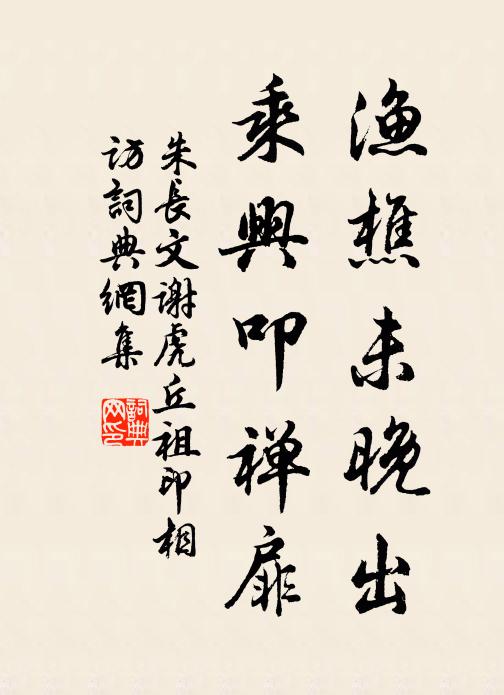 漁樵未晚出
乘興叩禅扉
朱長文谢虎丘祖印相
访詞典網集
詞典
网印